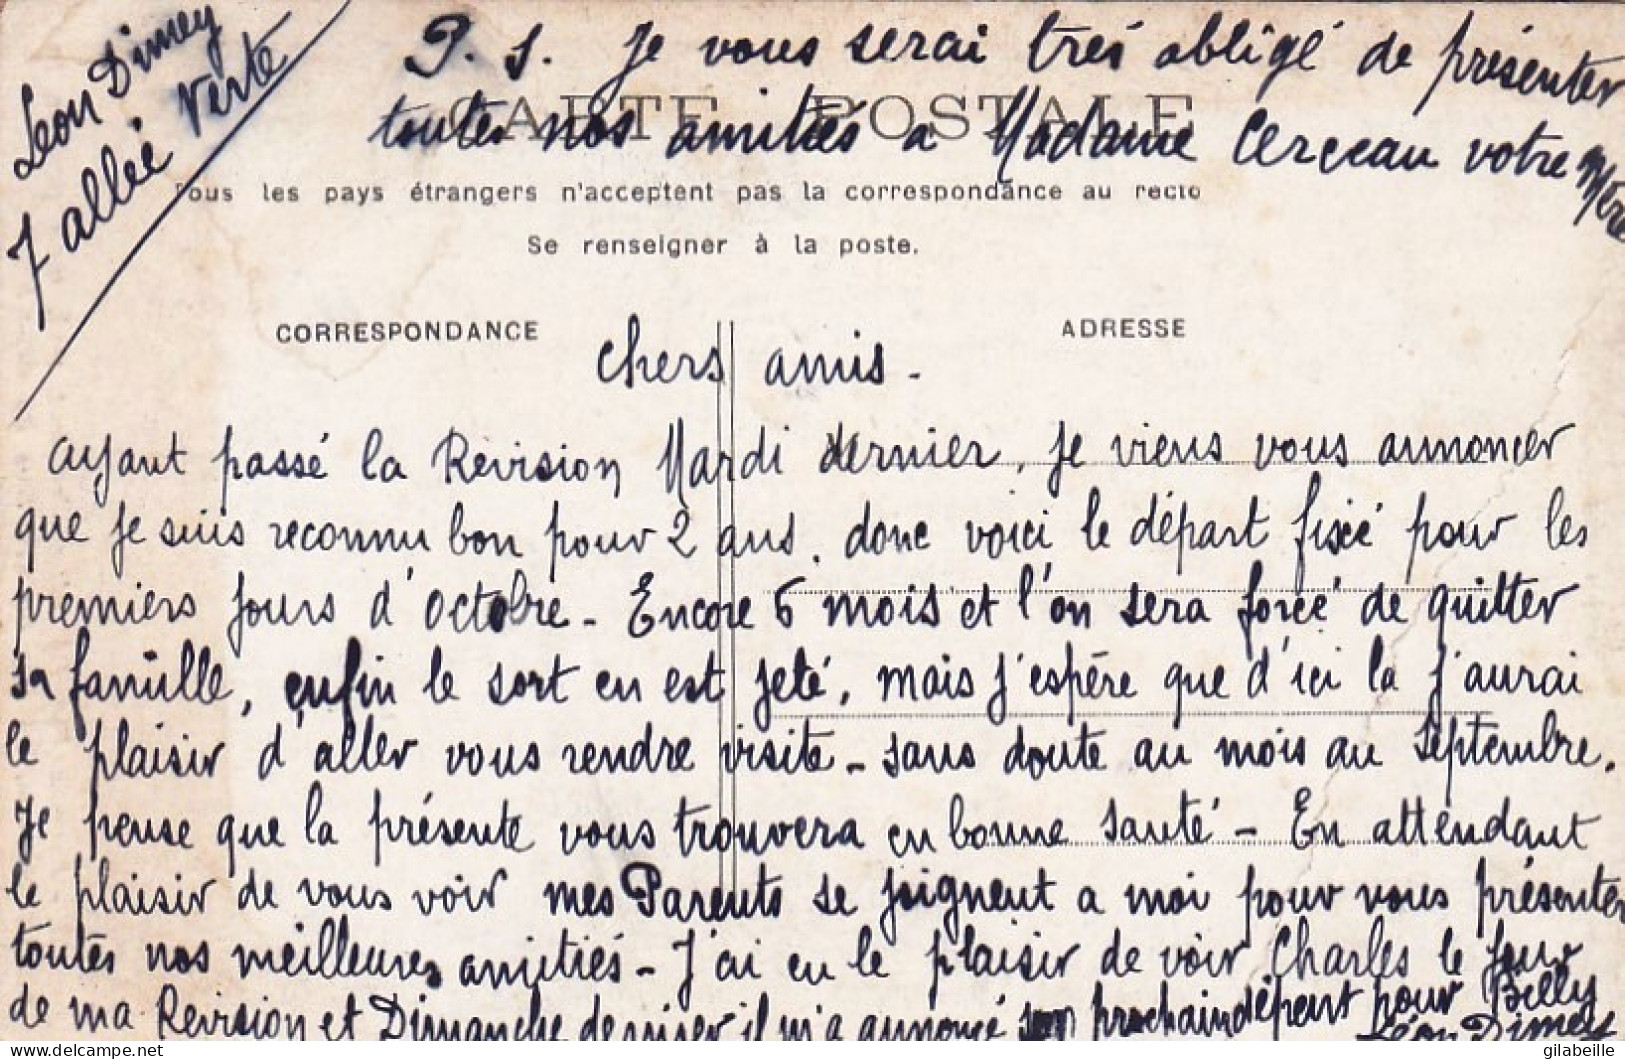 Léon Dimey
7 allée Verte
P. S. Je vous serai très obligé de présenter
toutes nos amitiés a Madame Cerceau votre Mère
CARTE POSTALE
Tous les pays étrangers n'acceptent pas la correspondance au recto
Se renseigner à la poste.
CORRESPONDANCE
ADRESSE
Chers amis -
ayant passé la Revision Mardi dernier, je viens vous annoncer
que je suis reconnu bon pour 2 ans. donc voici le départ fixé pour les
premiers jours d'octobre - Encore 6 mois et l'on sera forcé de quitter
sa famille, enfin le sort en est jeté, mais j'espère que d'ici la j'aurai
le plaisir d'aller vous rendre visite - sans doute au mois au Septembre.
Je pense que la présente vous trouvera en bonne santé - En attendant
le plaisir de vous voir mes Parents se joignent a moi pour vous présenter
toutes nos meilleures amitiés - J'ai eu le plaisir de voir Charles le jour
de ma Revision et Dimanche dernier il m'a annoncé son prochain départ pour Billy
Léon Dimey
gilabeille